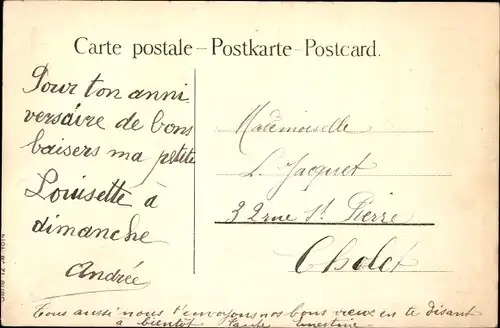 Carte postale – Postkarte – Postcard.
Pour ton anni
versaire de bons
baisers ma petite
Louisette à
dimanche
Andrée
Mademoiselle
L. Jacquet
32 rue St. Pierre
Cholet
Tous aussi nous t'envoyons nos bons vieux en te disant
à bientôt tante